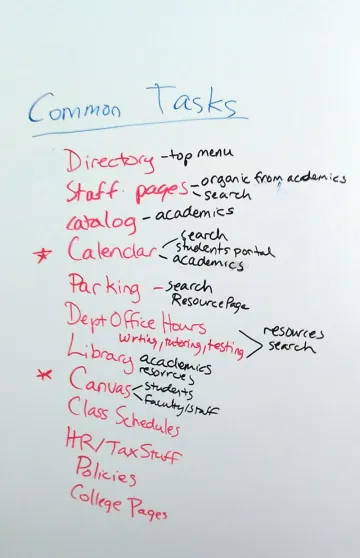 Common Tasks
Directory - top menu
Staff pages - organic from academics
- search
catalog - academics
* Calendar - search
- students portal
- academics
Parking - search
Resource Page
Dept Office Hours
writing, tutoring, testing > resources
search
Library academics
resources
* Canvas - students
- faculty/staff
Class Schedules
HR/Tax Stuff
Policies
College Pages